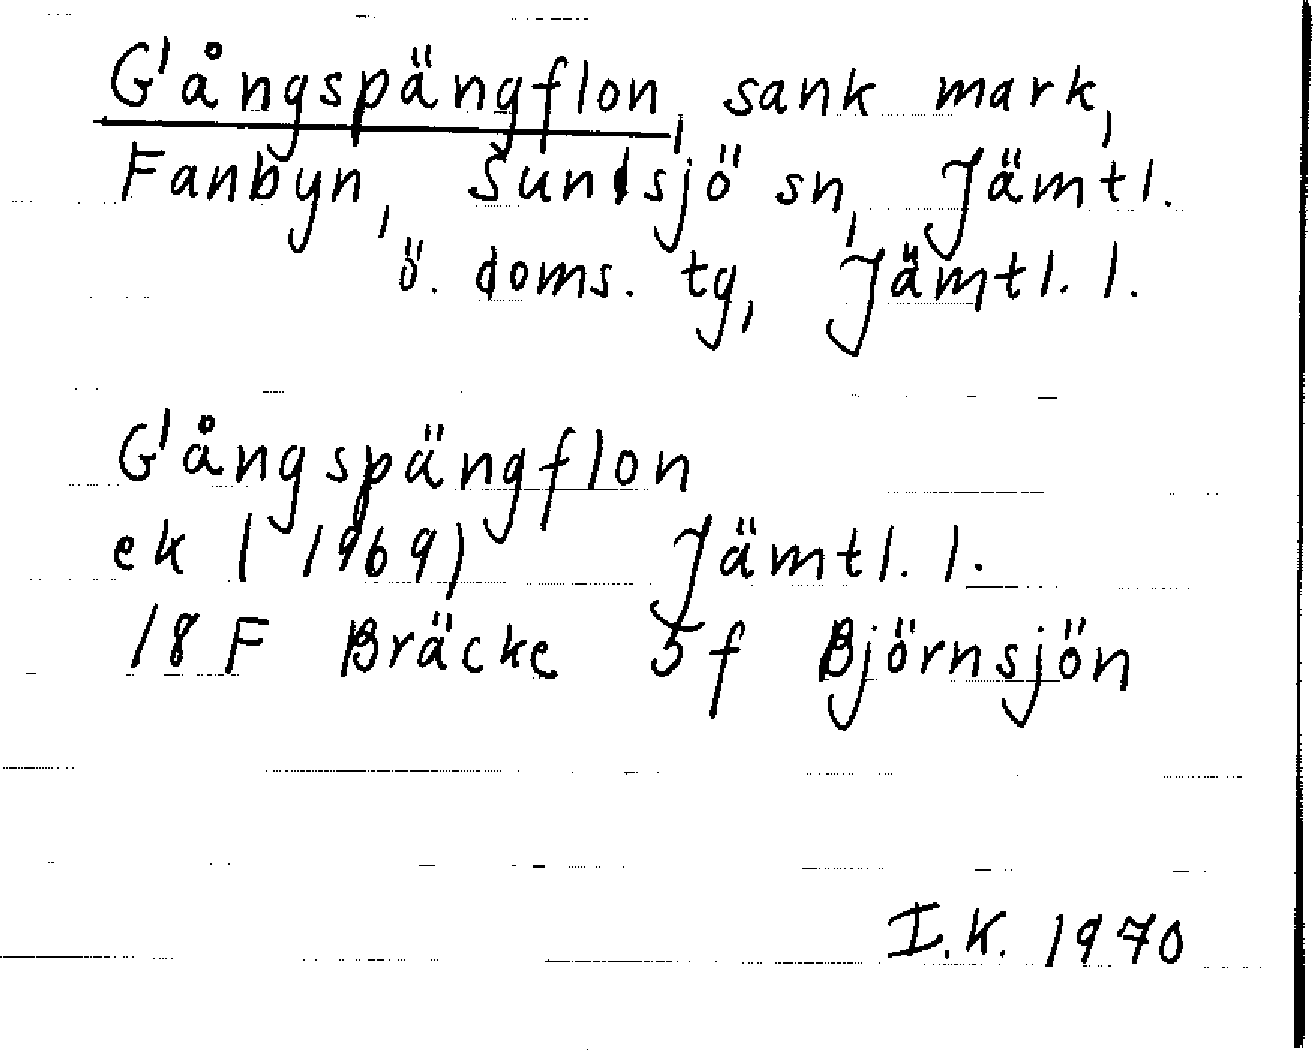 Gångspängflon, sank mark,
Fanbyn, Sundsjö sn, Jämtl.
ö. doms. tg, Jämtl. l.
Gångspängflon
ek (1969) Jämtl. l.
18F Bräcke 5f Björnsjön
I.K. 1970